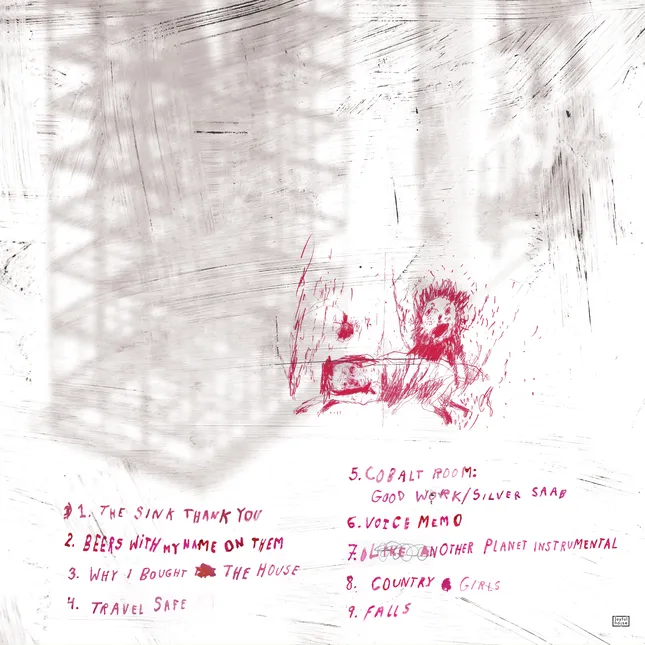 1. THE SINK THANK YOU
2. BEERS WITH MY NAME ON THEM
3. WHY I BOUGHT THE HOUSE
4. TRAVEL SAFE
5. COBALT ROOM:
GOOD WORK/SILVER SAAB
6. VOICE MEMO
7. LIKE ANOTHER PLANET INSTRUMENTAL
8. COUNTRY GIRLS
9. FALLS
joyful noise